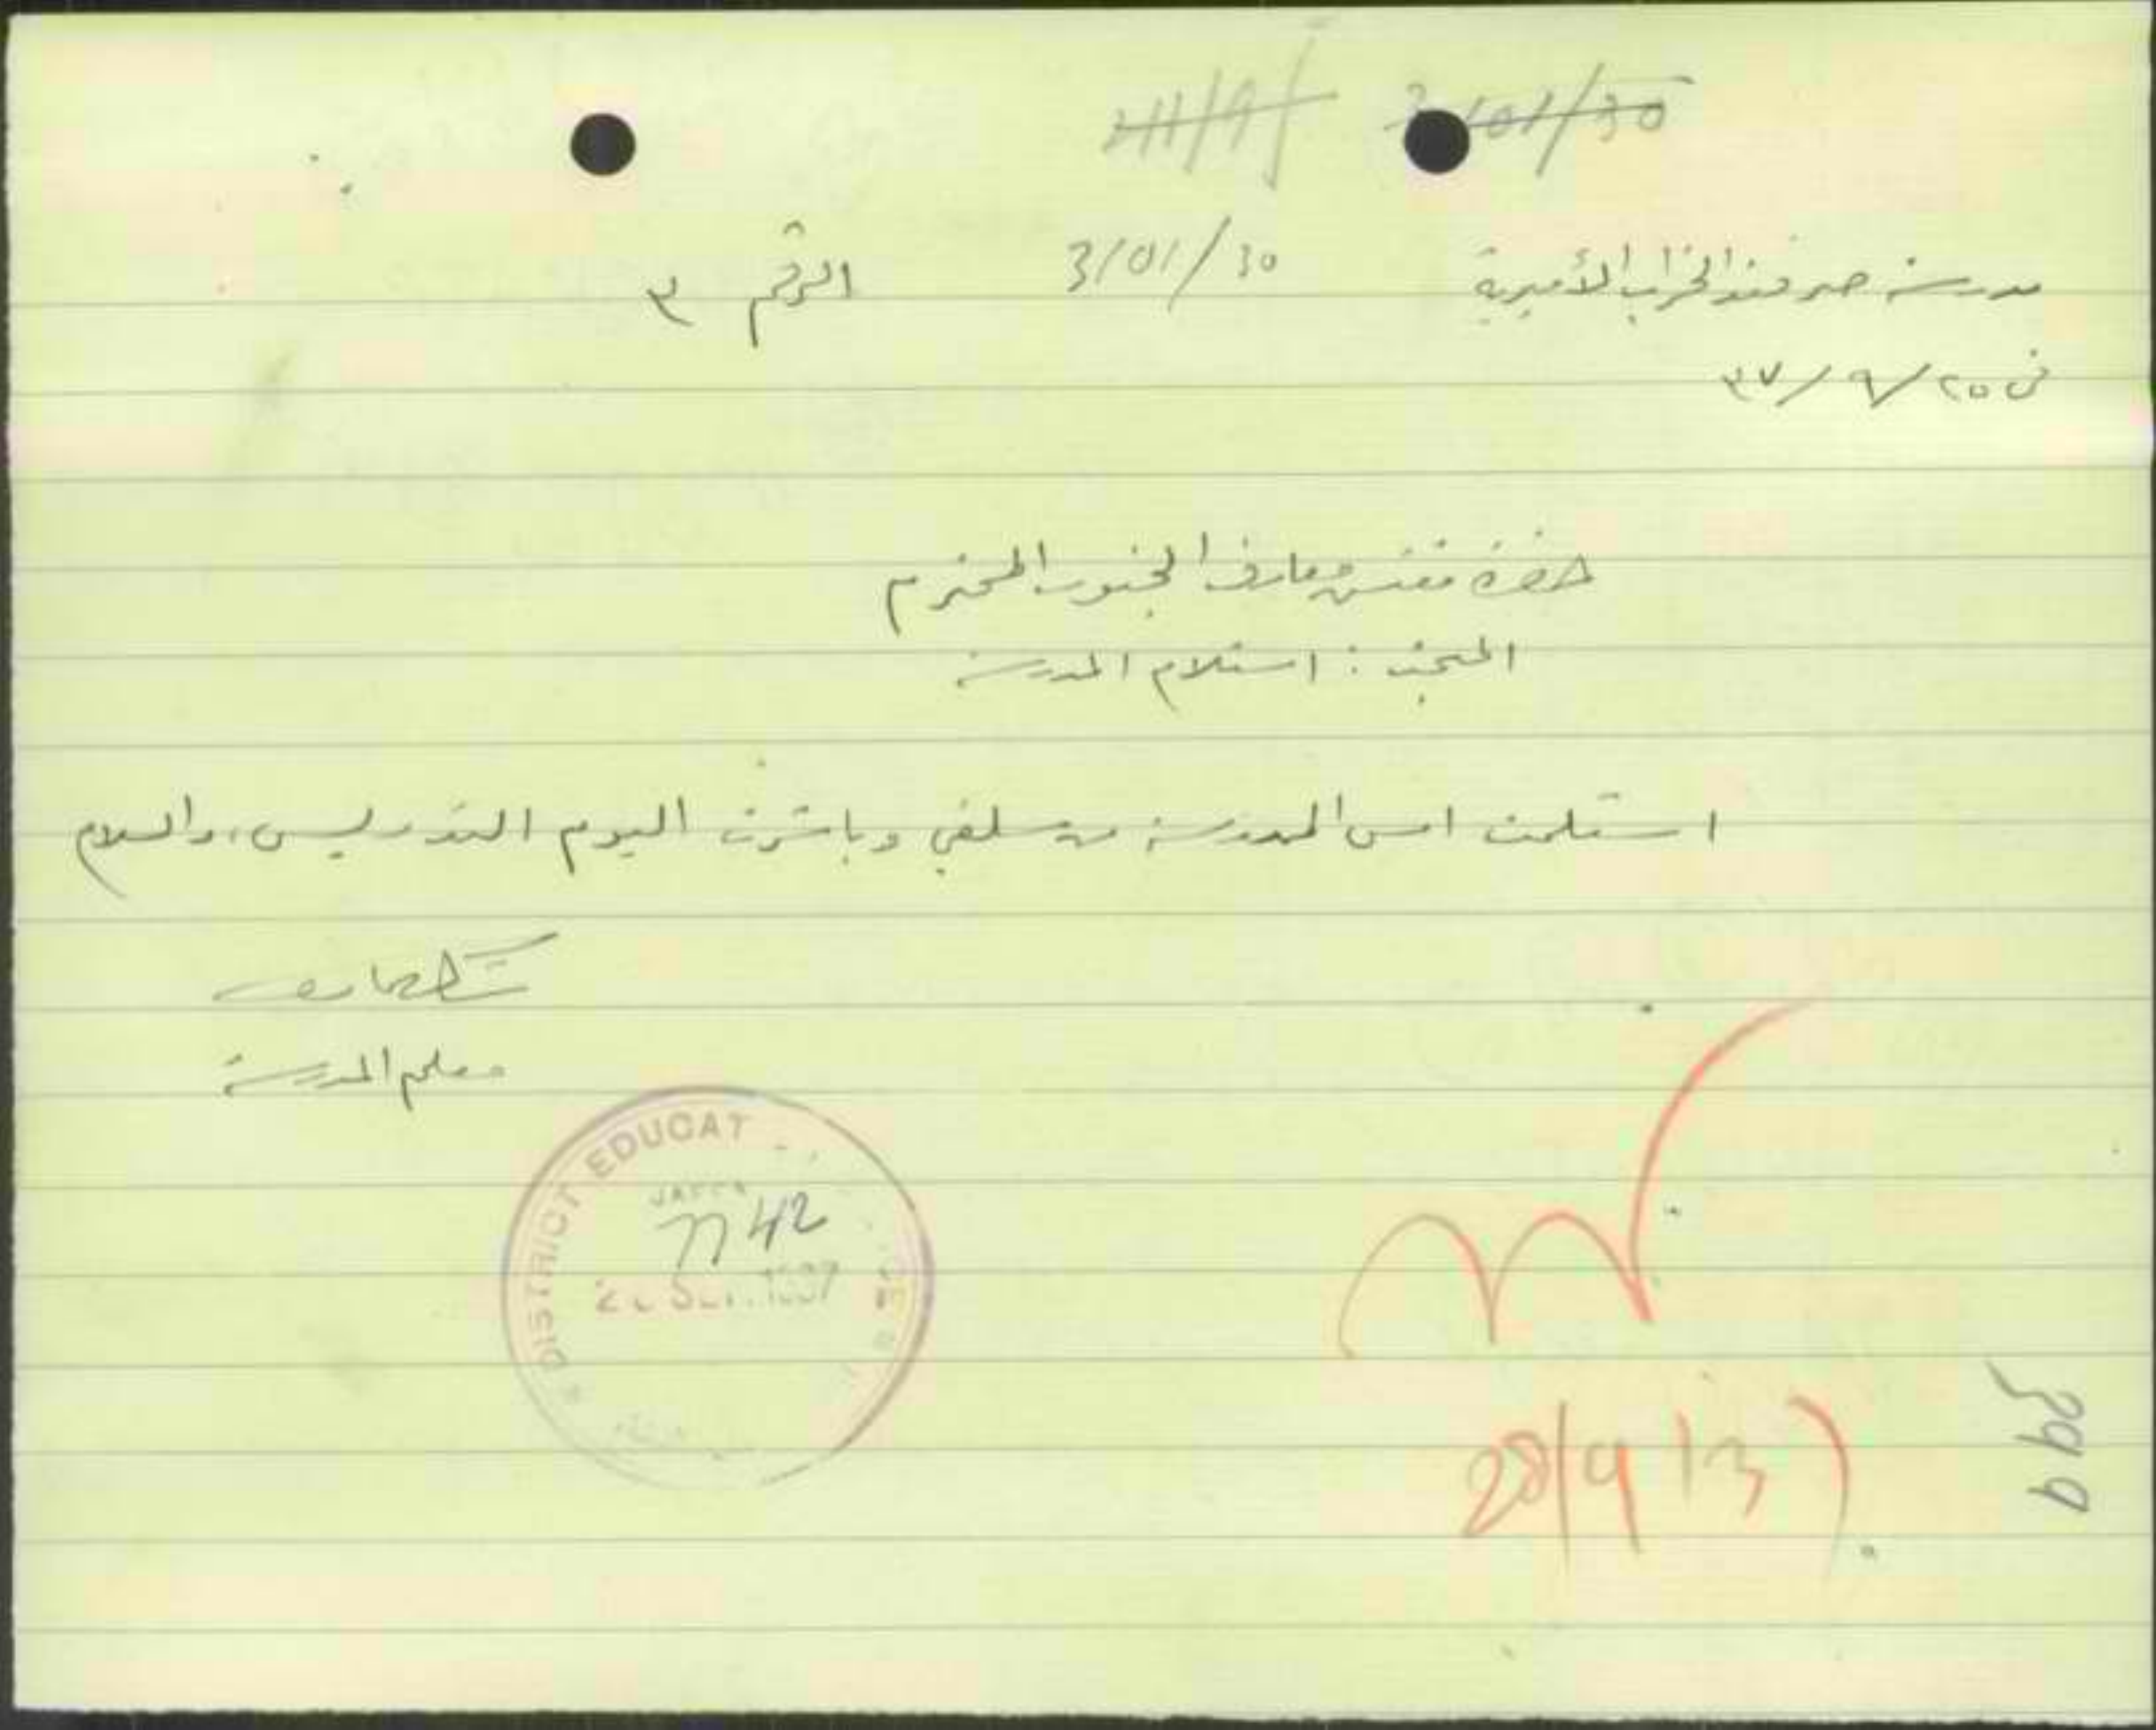 3/01/30
مدرسة صرفند الخراب الأميرية 3/01/30 الرقم ٣
في ٢٥/٩/٣٧
حضرة مفتش معارف الجنوب المحترم
المبحث : استلام المدرسة
استلمت امس المدرسة من سلفي وباشرت اليوم التدريس، والسلام
معلم المدرسة
DISTRICT EDUCAT
JAFFA
1142
28/9/37